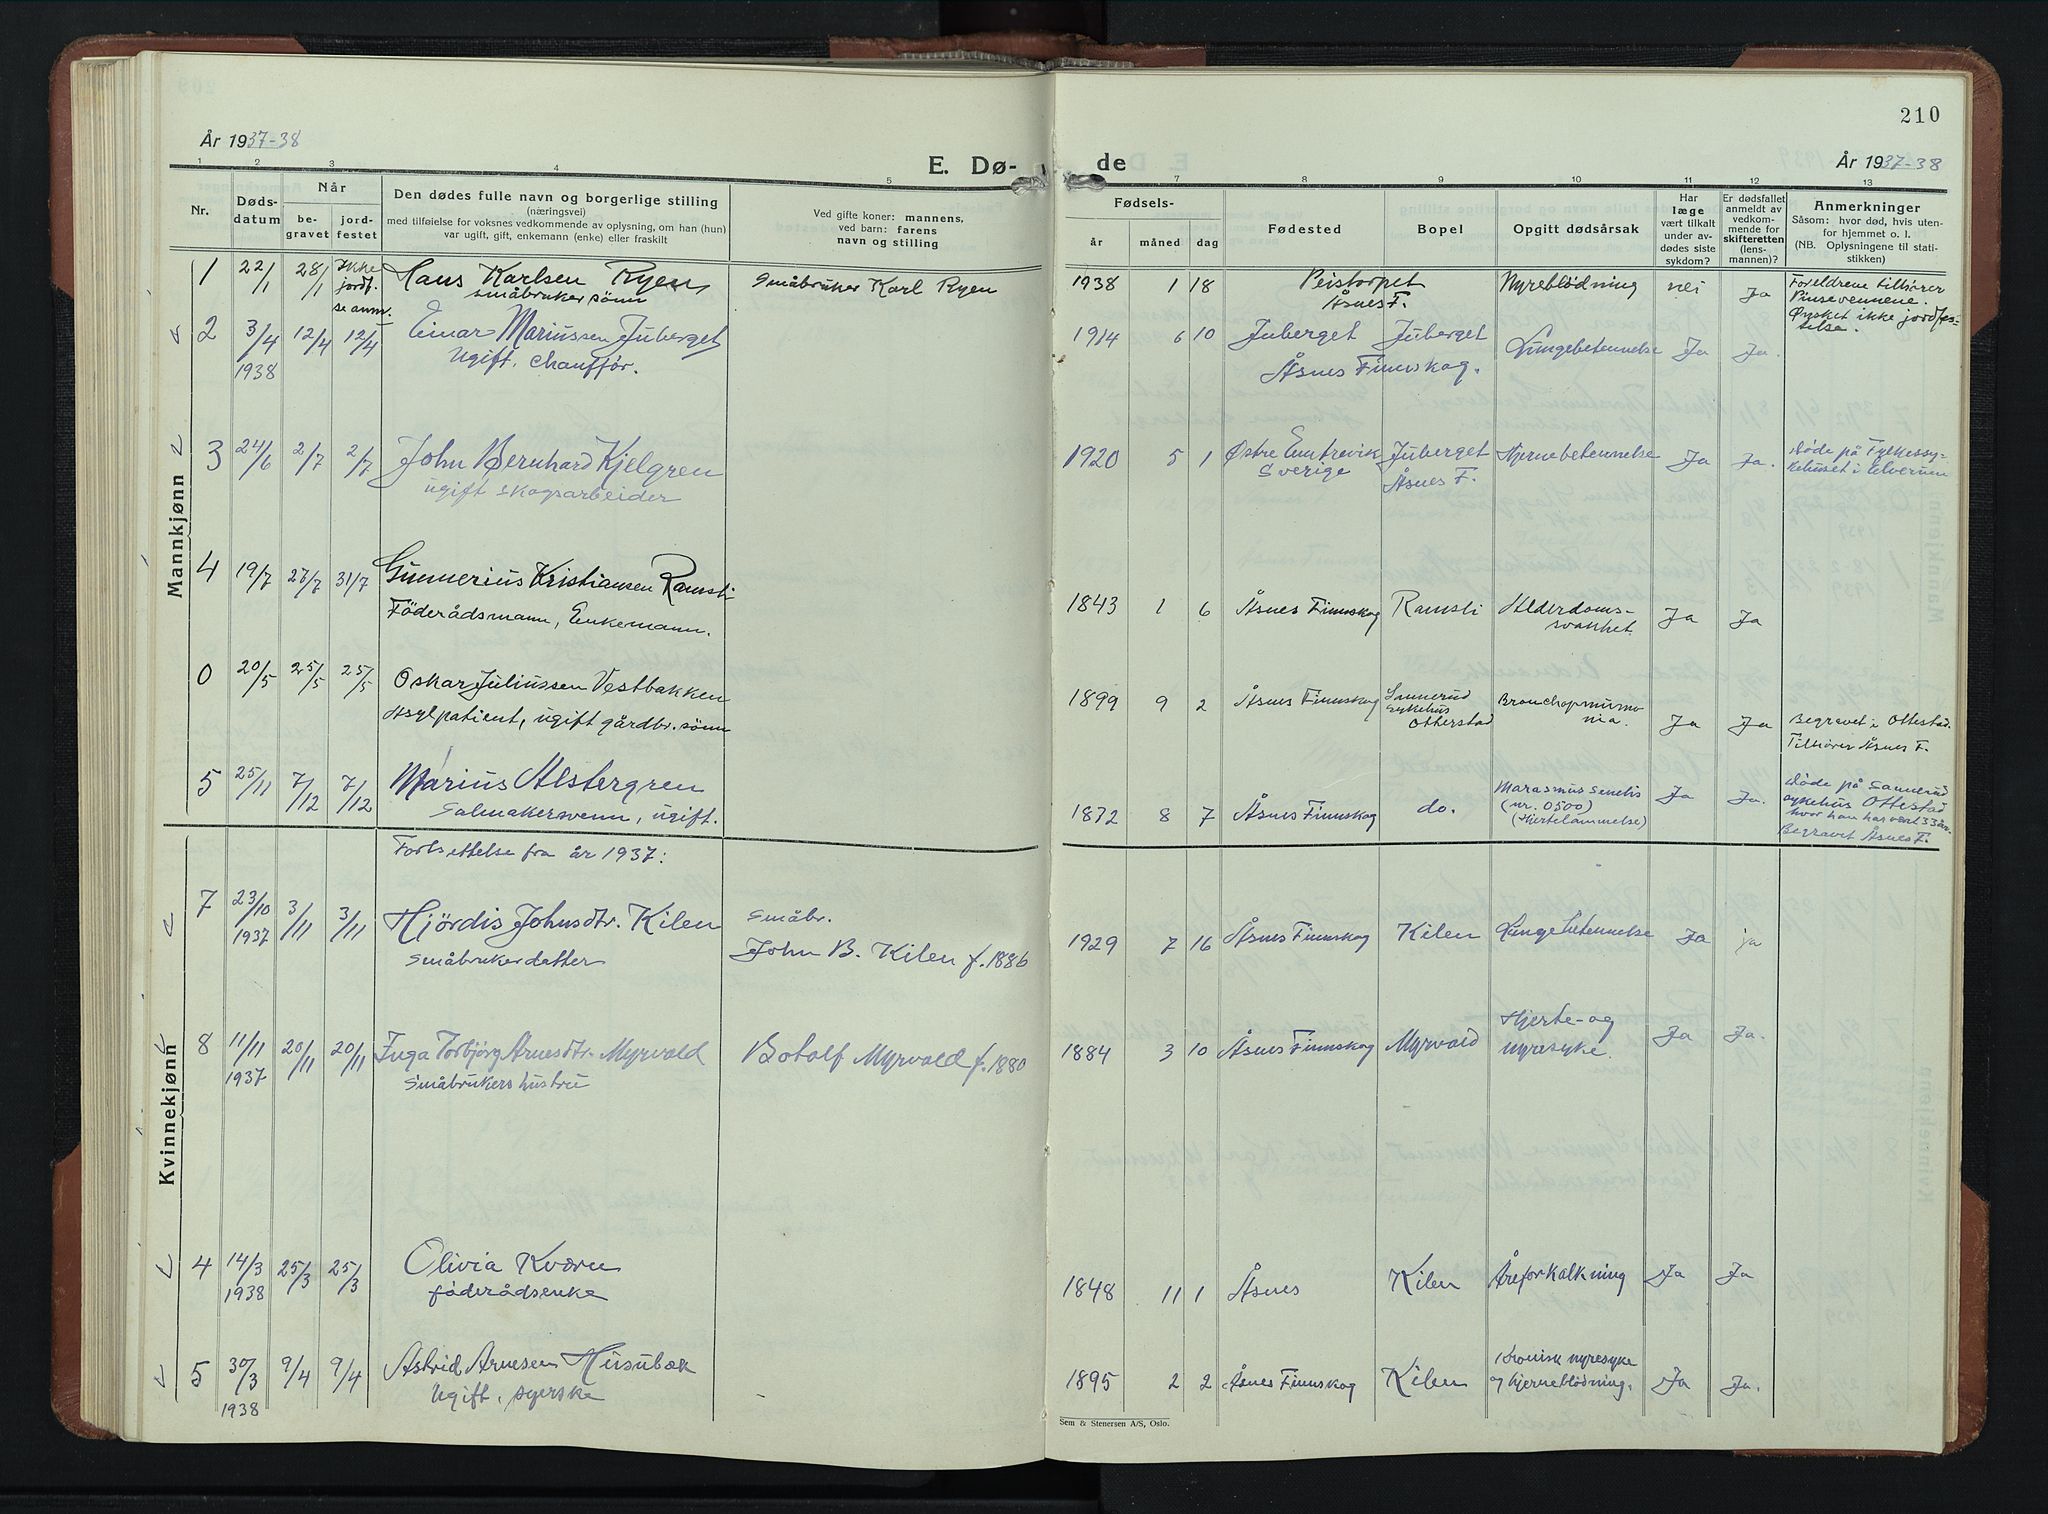 210
År 1937-38
E. Dø-
de
År 1937-38
1 2 3 4 5 7 8 9 10 11 12 13
Nr.
Døds-
datum
Når
be-
gravet
jord-
festet
Den dødes fulle navn og borgerlige stilling
(næringsvei)
med tilføielse for voksnes vedkommende av oplysning, om han (hun)
var ugift, gift, enkemann (enke) eller fraskilt
Ved gifte koner: mannens,
ved barn: farens
navn og stilling
Fødsels-
år måned dag
Fødested
Bopel
Opgitt dødsårsak
Har
læge
vært tilkalt
under av-
dødes siste
sykdom?
Er dødsfallet
anmeldt av
vedkom-
mende for
skifteretten
(lens-
mannen)?
Anmerkninger
Såsom: hvor død, hvis uten-
for hjemmet o. l.
(NB. Oplysningene til stati-
stikken)
Mannkjønn
1 22/1 28/1 Ikke
jordf.
se anm.
Hans Karlsen Ryen
småbruker sønn
Småbruker Karl Ryen
1938 1 18 Peistorpet
Åsnes F.
Nyreblødning nei Ja
Foreldrene tilhører
Pinsevennene.
Ønsket ikke jordfes-
telse.
2 3/4 12/4 12/4
1938
Einar Mariussen Juberget
Ugift. Chauffør.
1914 6 10 Juberget Juberget
Åsnes Finnskog.
Lungebetennelse Ja Ja.
3 24/6 2/7 2/7
John Bernhard Kjelgren
ugift skogsarbeider
1920 5 1 Østre Emtervik
Sverige
Juberget
Åsnes F.
Hjernebetennelse Ja Ja.
Døde på Fylkessy-
kehuset i Elverum
4 19/7 27/7 31/7
Gunnerius Kristiansen Ramsli
Föderådsmann, Enkemann.
1843 1 6 Åsnes Finnskog Ramsli
Alderdoms-
svakhet.
Ja Ja
0 20/5 25/5 25/5
Oskar Juliussen Vestbakken
Asylpatient, ugift gårdbr. sønn
1899 9 2 Åsnes Finnskog
Sannerud
sykehus
Otterstad
Bronchopneumo-
nia.
Ja Ja
Begravet i Ottestad.
Tilhører Åsnes F.
5 25/11 7/12 7/12
Marius Alstergren
Salmakersvenn, ugift.
1872 8 7 Åsnes Finnskog do.
Marasmus senilis
(nr. 0500)
(Hjertelammelse)
Ja Ja.
Døde på Sannerud
sykehus Ottestad
hvor han har vært 33 år.
Begravet Åsnes F.
Kvinnekjønn
Fortsettelse fra år 1937:
7 23/10 3/11 3/11
1937
Hjördis Johnsdtr. Kilen
Småbrukerdatter
Småbr.
John B. Kilen f. 1886
1929 7 16 Åsnes Finnskog Kilen Lungebetennelse Ja ja
8 11/11 20/11 20/11
1937
Inga Torbjörg Arnesdtr. Myrvold
Småbrukers hustru
Botolf Myrvold f. 1880
1884 3 10 Åsnes Finnskog Myrvold
Hjerte- og
nyresyke.
Ja Ja.
4 14/3 25/3 25/3
1938
Olivia Kværn
føderådsenke
1848 11 1 Åsnes Kilen Åreforkalkning Ja Ja
5 30/3 9/4 9/4
1938
Astrid Arnesen Husubæk
Ugift, syerske
1895 2 2 Åsnes Finnskog Kilen
Kronisk nyresyke
og hjerneblödning.
Ja Ja.
Sem & Stenersen A/S, Oslo.